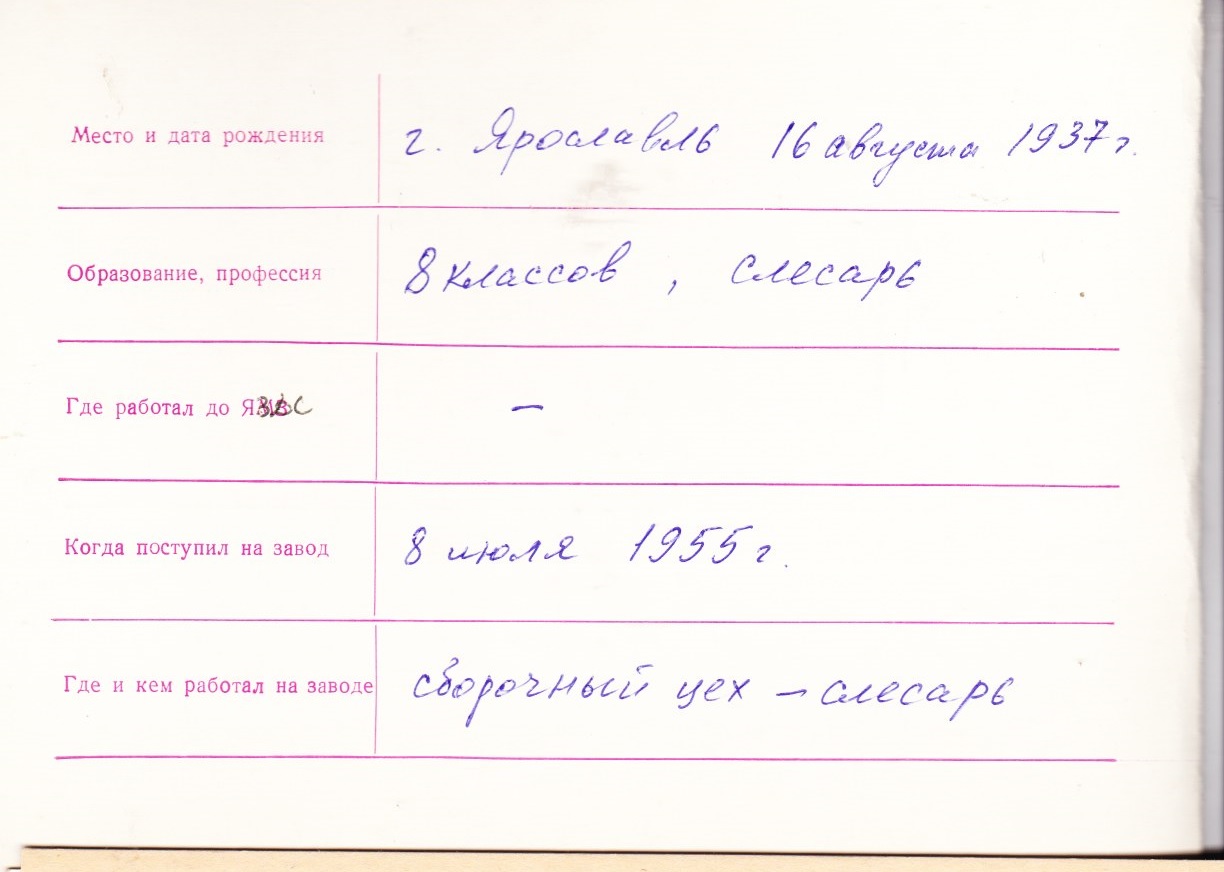 Место и дата рождения г. Ярославль 16 августа 1937 г.
Образование, профессия 8 классов, слесарь
Где работал до –
Когда поступил на завод 8 июля 1955 г.
Где и кем работал на заводе сборочный цех – слесарь